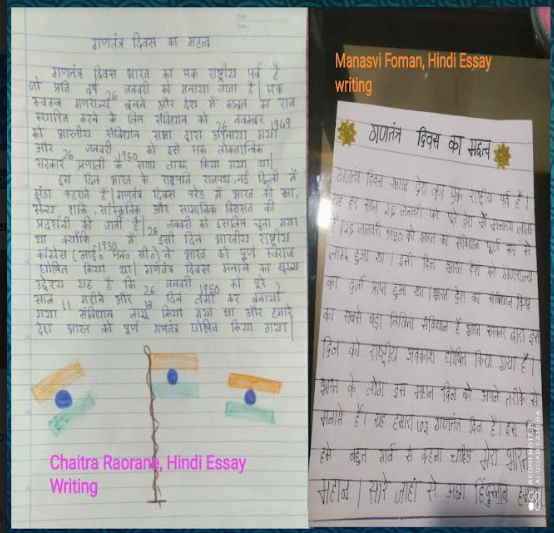 गणतंत्र दिवस का महत्व
गणतंत्र दिवस भारत का एक राष्ट्रीय पर्व है
जो प्रति वर्ष 26 जनवरी को मनाया जाता है। एक
स्वतंत्र गणराज्य बनने और देश में कानून का राज
स्थापित करने के लिए संविधान को 26 नवम्बर 1949
को भारतीय संविधान सभा द्वारा अपनाया गया
और 26 जनवरी 1950 को इसे एक लोकतांत्रिक
सरकार प्रणाली के साथ लागू किया गया था।
इस दिन भारत के राष्ट्रपति राजपथ नई दिल्ली में
झंडा फहराते हैं। गणतंत्र दिवस परेड में भारत की
सैन्य शक्ति, सांस्कृतिक और सामाजिक विरासत की
प्रदर्शनी की जाती है। 26 जनवरी को इसलिए चुना गया
था क्योंकि 1930 में इसी दिन भारतीय राष्ट्रीय
कांग्रेस ने भारत को पूर्ण स्वराज
घोषित किया था। गणतंत्र दिवस मनाने का मुख्य
उद्देश्य यह कि 26 जनवरी 1950 को पूरे
साल 11 महीने और 18 दिन लगा कर बनाया
गया संविधान लागू किया गया था और हमारे
देश भारत को पूर्ण गणतंत्र घोषित किया गया।
Chaitra Raorane, Hindi Essay
Writing
Manasvi Foman, Hindi Essay
writing
गणतंत्र दिवस का महत्व
गणतंत्र दिवस हमारे देश का एक राष्ट्रीय पर्व है।
यह हर साल 26 जनवरी को पूरे देश में मनाया जाता
है। 26 जनवरी को भारत का संविधान पूर्ण रूप से
लागू हुआ था। इसी दिन हमारे देश को गणराज्य
का दर्जा प्राप्त हुआ था। हमारे देश का संविधान विश्व
का सबसे बड़ा लिखित संविधान है भारत सरकार द्वारा इस
दिन को राष्ट्रीय अवकाश घोषित किया गया है।
भारत के लोग इस महान दिन को अपने तरीके से
मनाते हैं। यह हमारा गणतंत्र दिन है। इस
हमे बहुत गर्व से कहना चाहिए मेरा भारत
महान। सारे जहाँ से अच्छा हिंदुस्तान